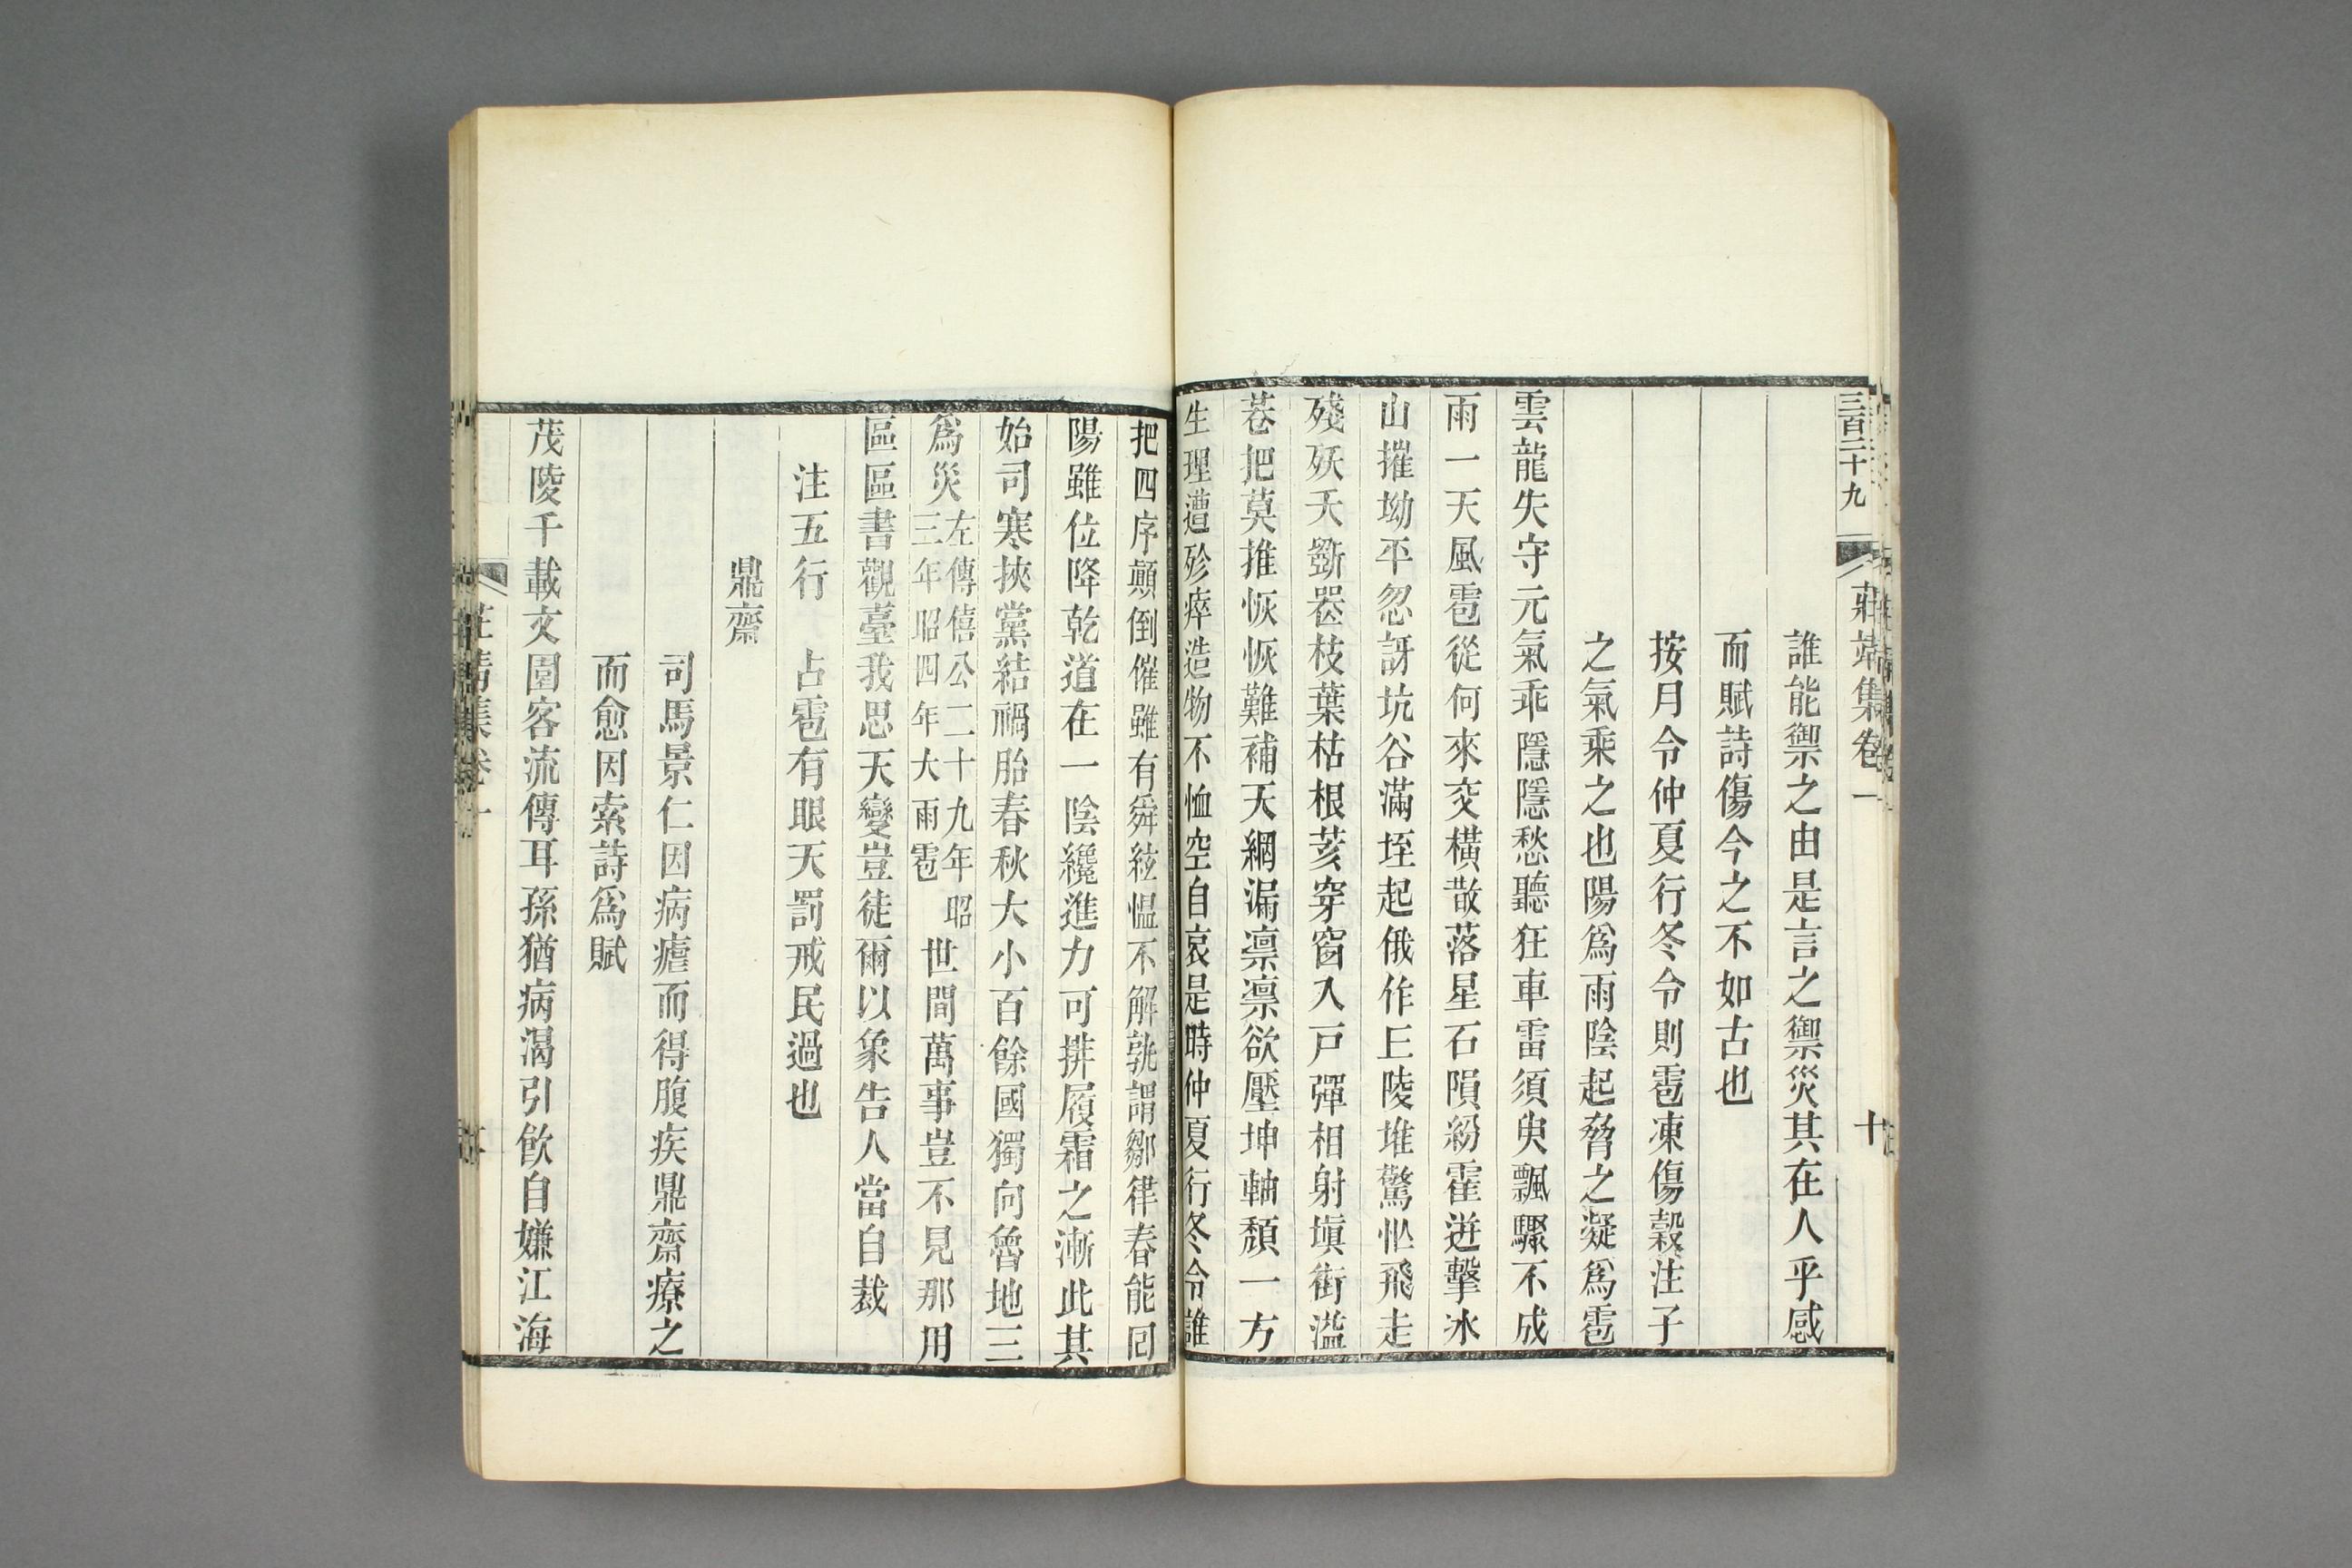 三百二十九
莊靖集卷一
十
誰能禦之由是言之禦災其在人乎感
而賦詩傷今之不如古也
按月令仲夏行冬令則雹凍傷穀注子
之氣乘之也陽爲雨陰起脅之凝爲雹
雲龍失守元氣乖隱隱愁聽狂車雷須臾飄驟不成
雨一天風雹從何來交橫散落星石隕紛霍迸擊冰
山摧坳平忽訝坑谷滿垤起俄作丘陵堆驚怭飛走
殘殀夭斵噐枝葉枯根荄穿窗入戸彈相射塡街溢
巷把莫推恢恢難補天網漏凛凛欲壓坤軸頹一方
生理遭殄瘁造物不恤空自哀是時仲夏行冬令誰
把四序顛倒催雖有舜絃慍不解孰謂鄒律春能回
陽雖位降乾道在一陰纔進力可排履霜之漸此其
始司寒挾黨結禍胎春秋大小百餘國獨向魯地三
爲災左傳僖公二十九年昭三年昭四年大雨雹世間萬事豈不見那用
區區書觀臺我思天變豈徒爾以象告人當自裁
注五行 占雹有眼天罰戒民過也
鼎齋
司馬景仁因病瘧而得腹疾鼎齋療之
而愈因索詩爲賦
茂陵千載文園客流傳耳孫猶病渴引飮自嫌江海
莊靖集卷一